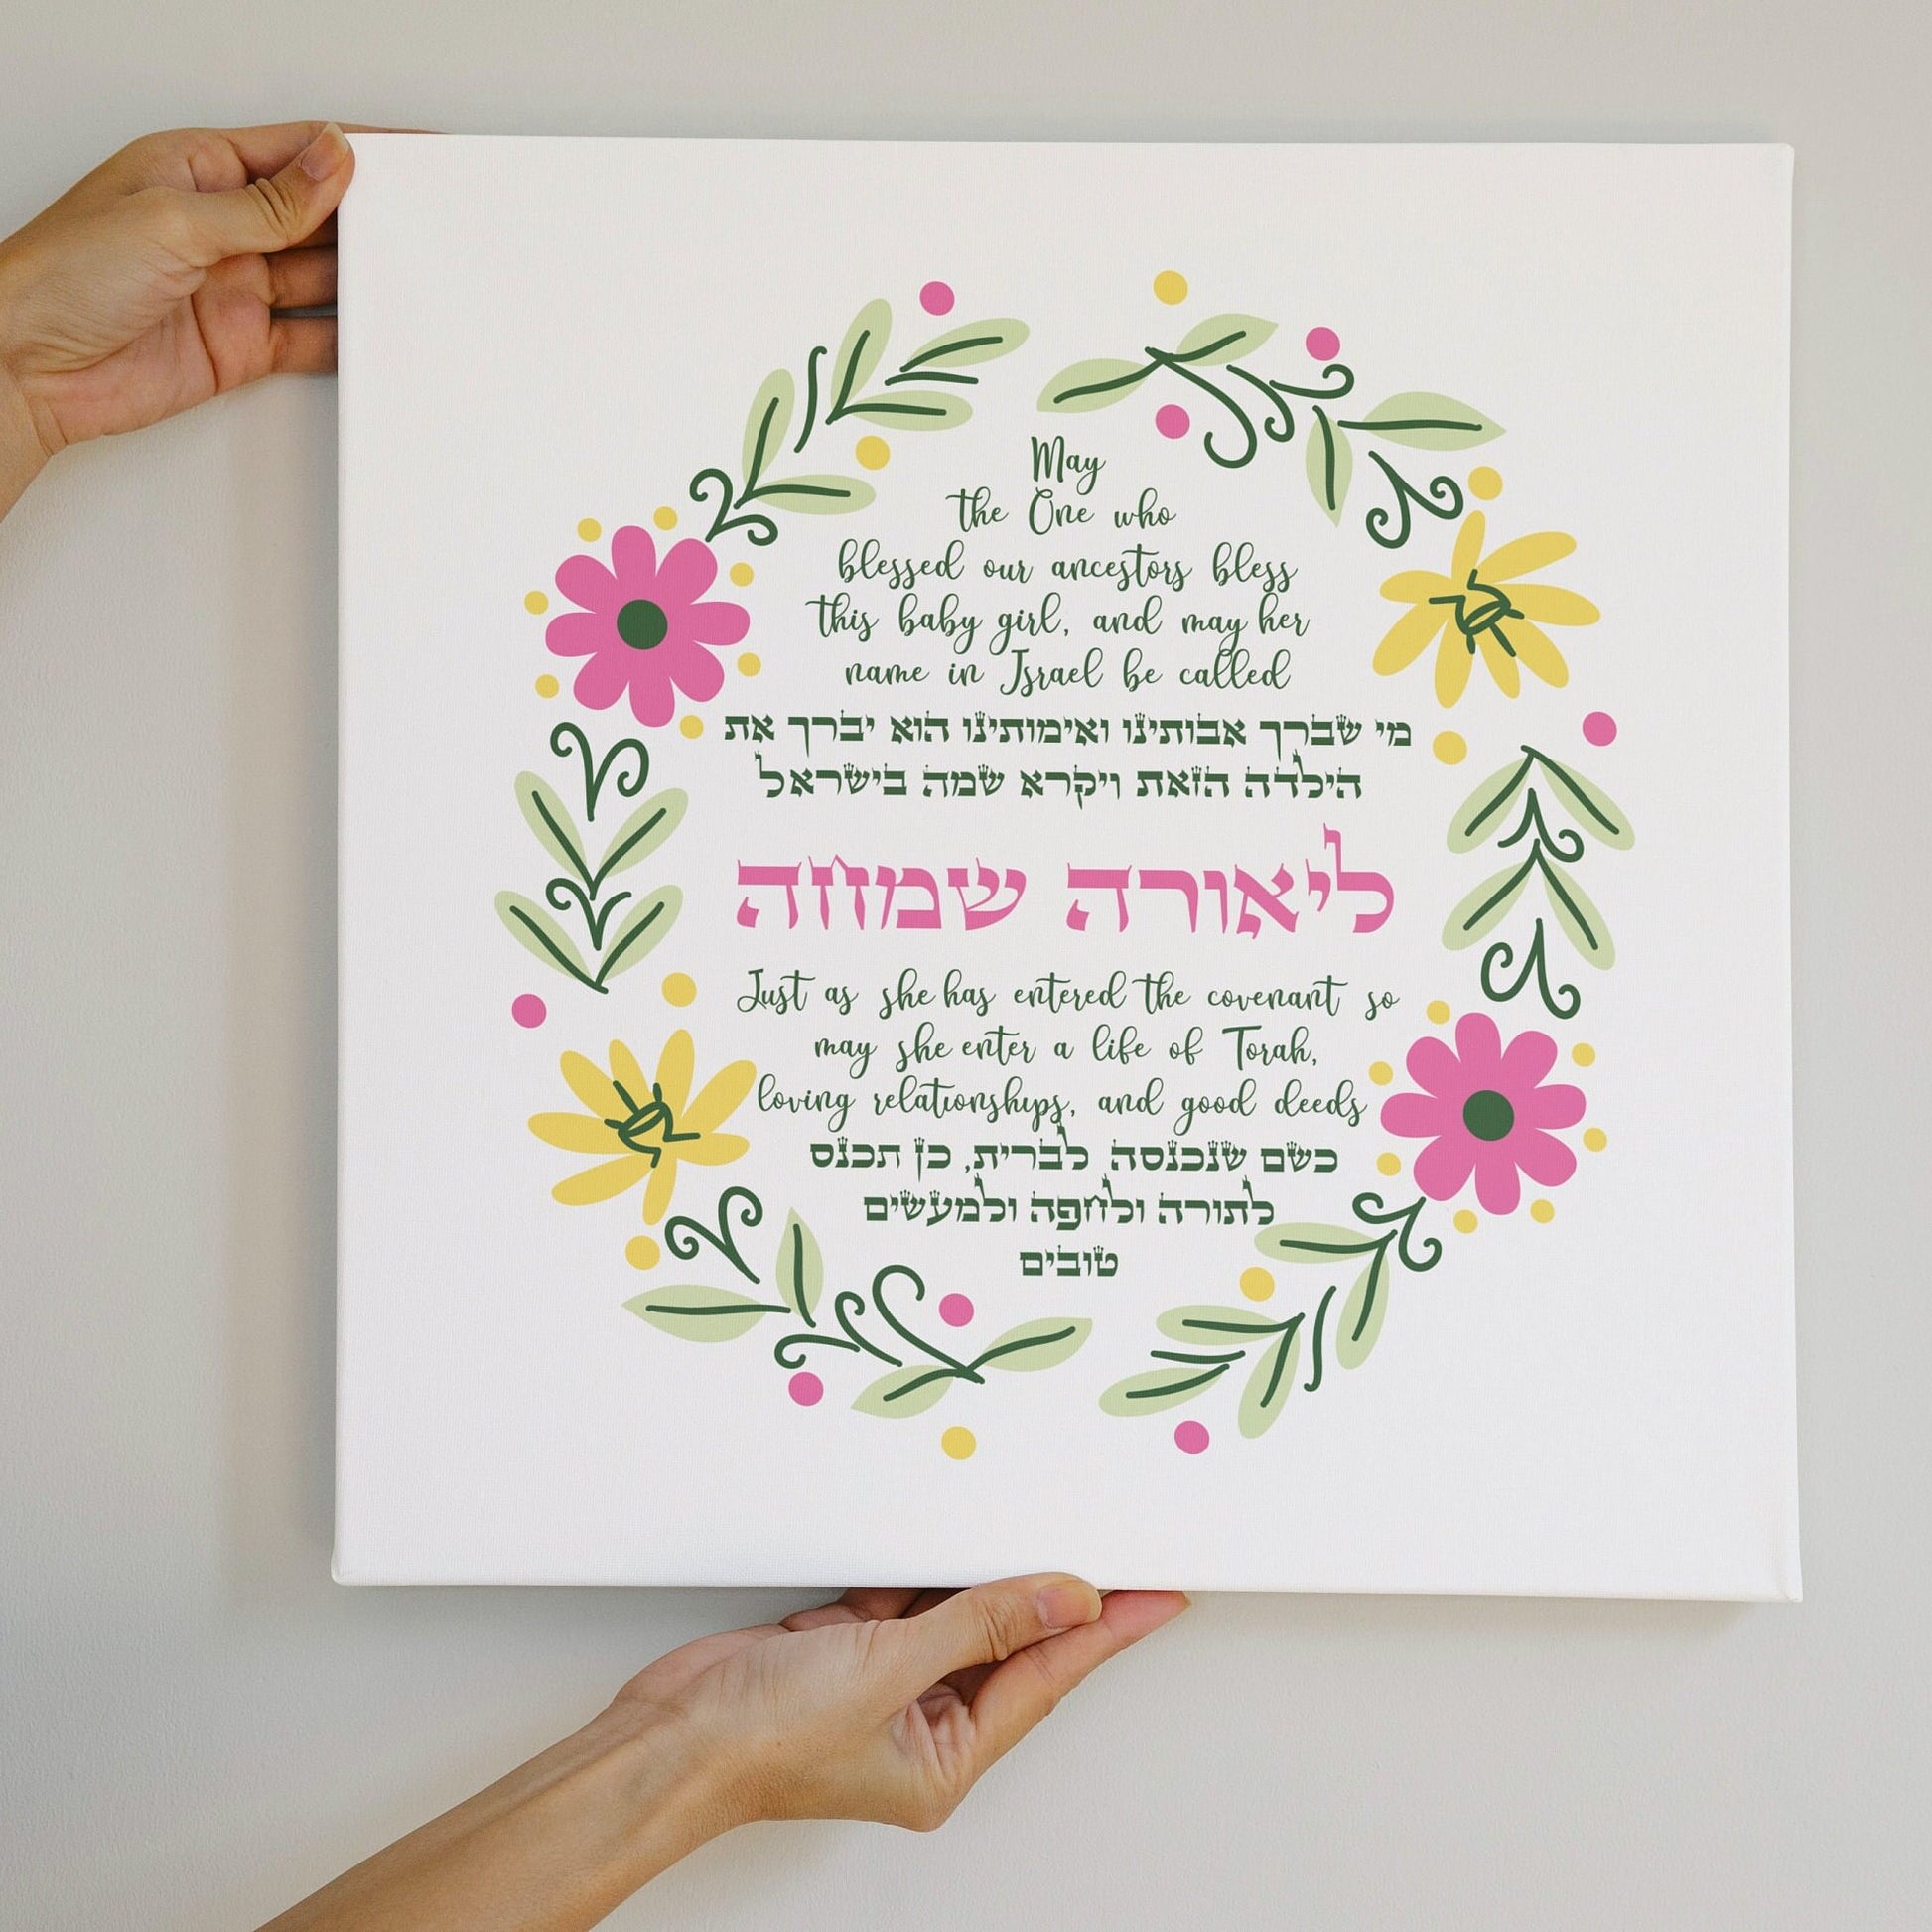 May
the One who
blessed our ancestors bless
this baby girl, and may her
name in Israel be called
מי שברך אבותינו ואימותינו הוא יברך את
הילדה הזאת ויקרא שמה בישראל
ליאורה שמחה
Just as she has entered the covenant so
may she enter a life of Torah,
loving relationships, and good deeds
כשם שנכנסה לברית, כן תכנס
לתורה ולחפה ולמעשים
טובים